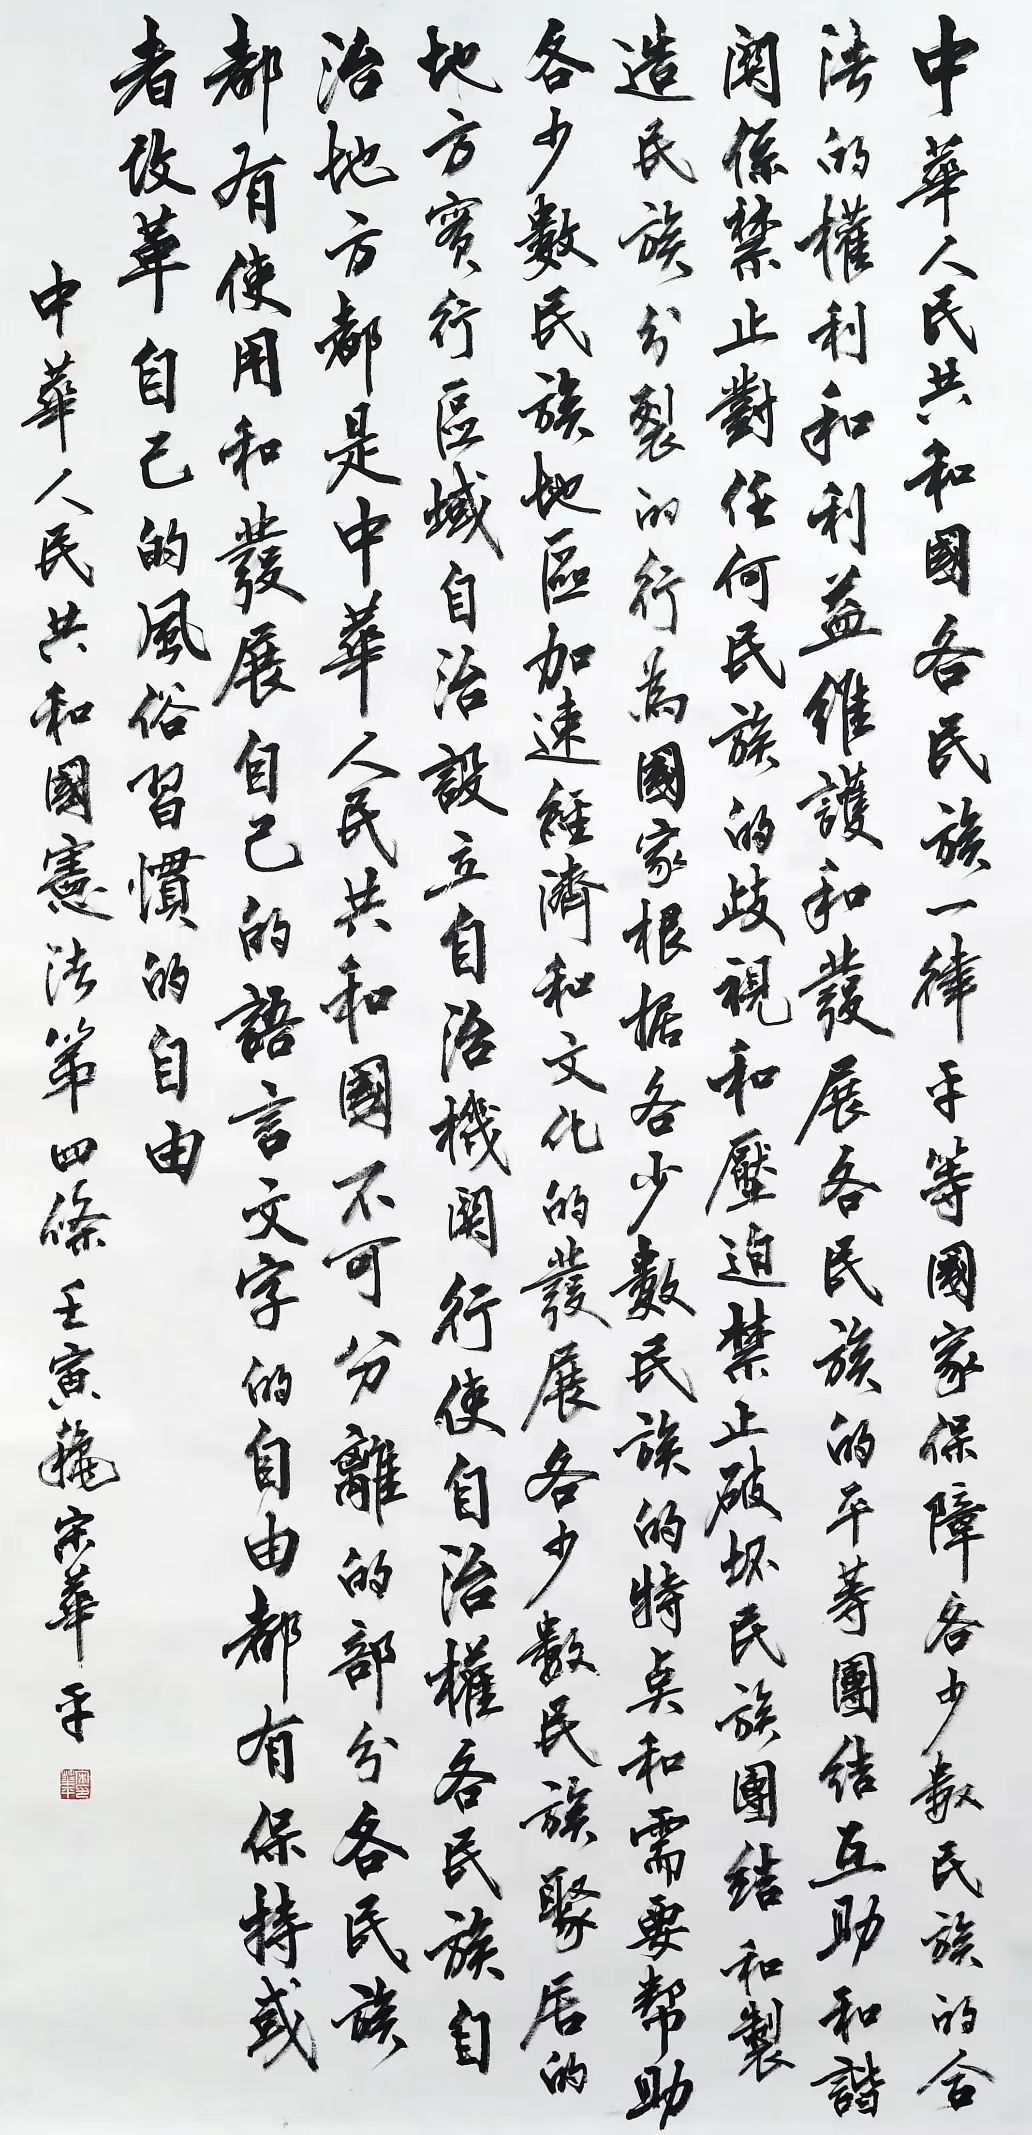 中華人民共和國各民族一律平等國家保障各少數民族的合
法的權利和利益維護和發展各民族的平等團結互助和諧
関係禁止對任何民族的歧視和壓迫禁止破坏民族團結和製
造民族分裂的行為國家根据各少數民族的特点和需要幇助
各少數民族地區加速經濟和文化的發展各少數民族聚居的
地方實行區域自治設立自治機関行使自治權各民族自
治地方都是中華人民共和國不可分離的部分各民族
都有使用和發展自己的語言文字的自由都有保持或
者改革自己的風俗習慣的自由
中華人民共和國憲法第四條壬寅龝宋華平